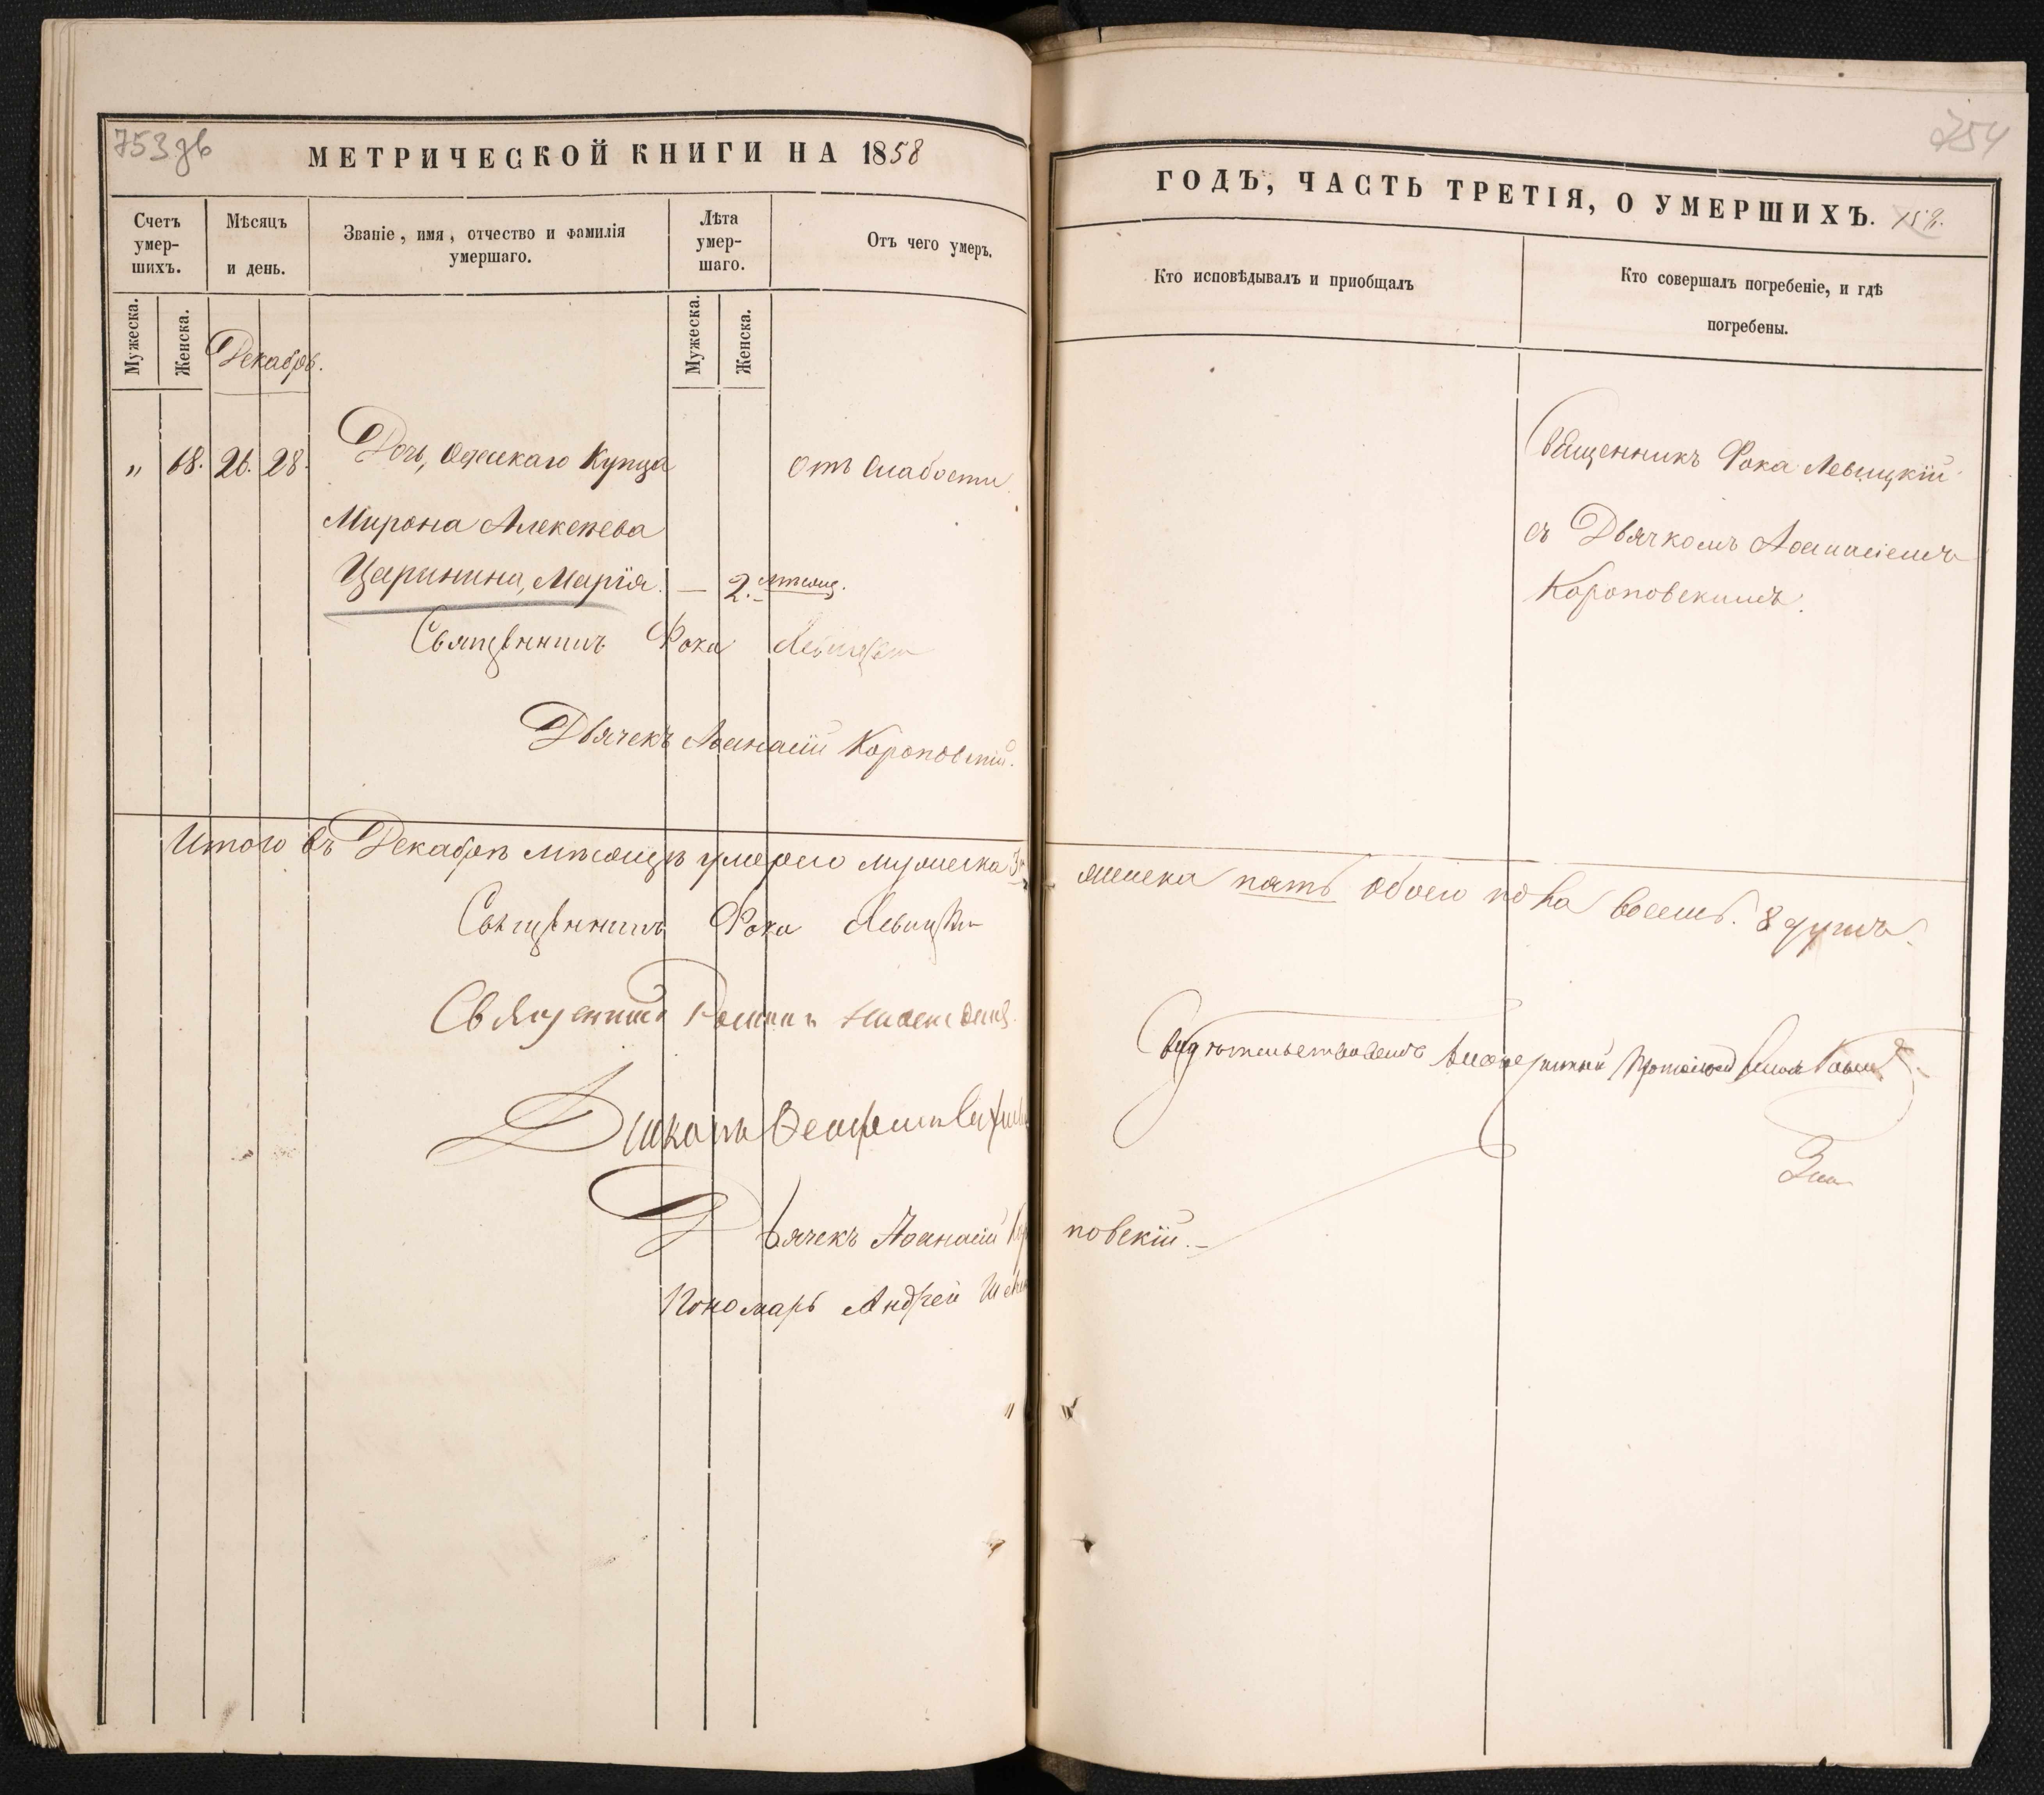 753 дв
МЕТРИЧЕСКОЙ КНИГИ НА 1858
Счетъ умер-шихъ.
Мѣсяцъ и день.
Званіе, имя, отчество и фамилія умершаго.
Лѣта умер-шаго.
Отъ чего умеръ.
Мужеска.
Женска.
Декабрь.
Мужеска.
Женска.
„ 68. 26. 28. Дочь, Одесскаго Купца отъ слабости.
Мирона Алексѣева
Царинина, Марія. — 2. мѣсяц.
Священникъ Фока Левицкій
Дьячекъ Аѳанасій Короповскій.
Итого въ Декабрѣ мѣсяцѣ умерло мужеска 3
Священникъ Фока Левицкій
Священникъ Романъ
Діаконъ
Дьячекъ Аѳанасій Коро
Пономарь Андрей
754
ГОДЪ, ЧАСТЬ ТРЕТІЯ, О УМЕРШИХЪ.
Кто исповѣдывалъ и пріобщалъ
Кто совершалъ погребеніе, и гдѣ погребены.
Священникъ Фока Левицкій
съ Дьячкомъ Аѳанасіемъ
Короповскимъ.
женска пять обоего пола восемь. 8 душъ.
Свидѣтельствовалъ Протоіерей
повскій.